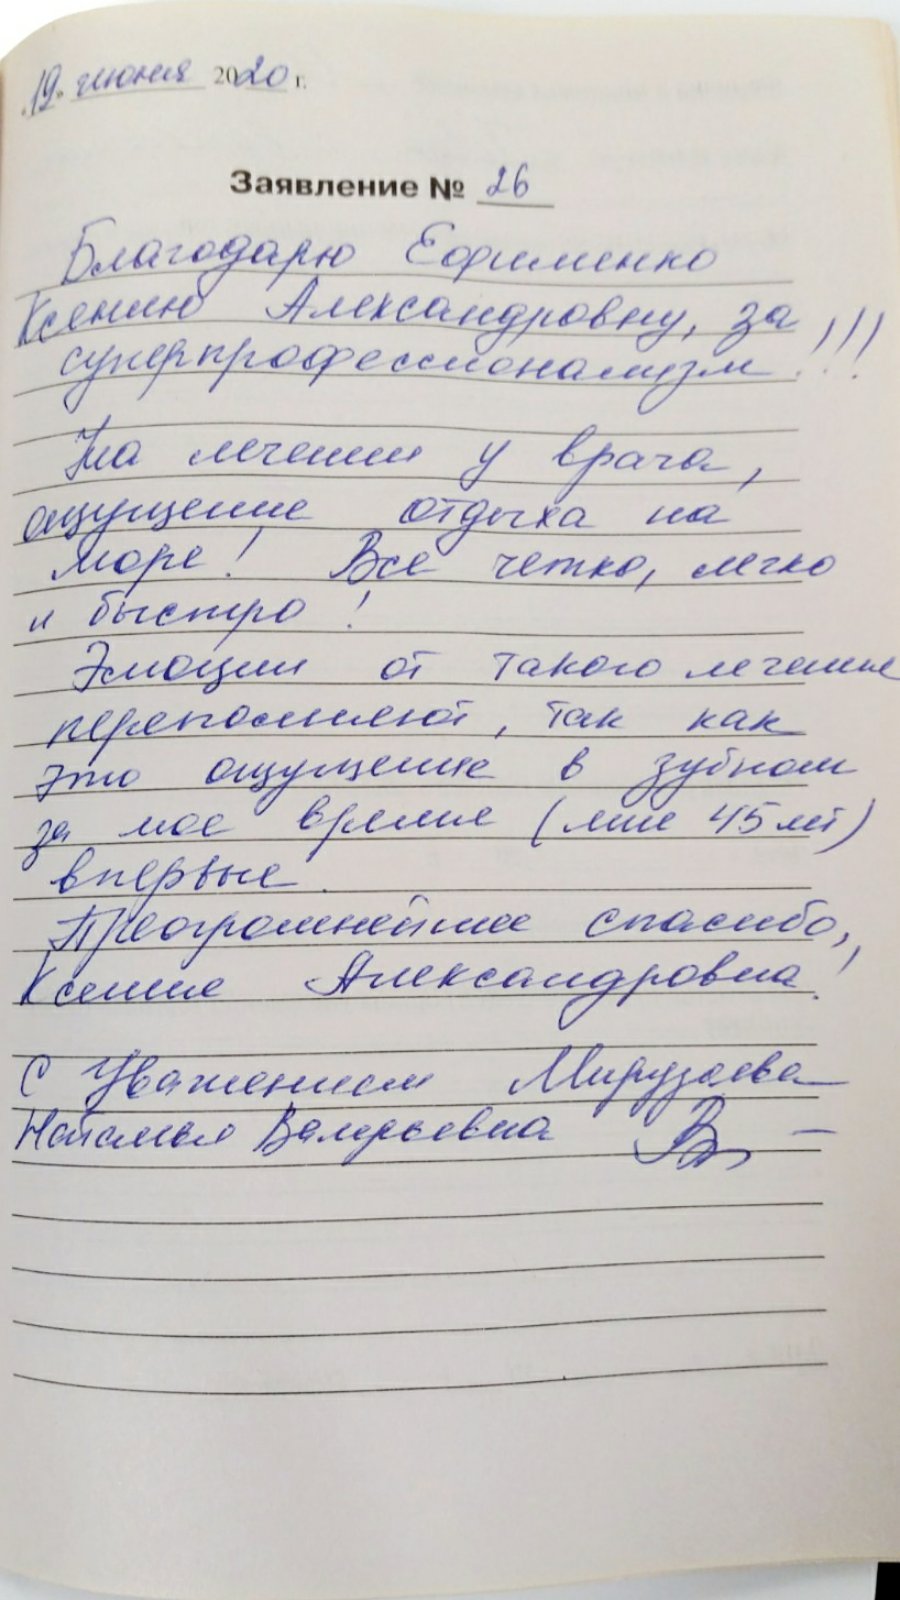 «19» июня 2020 г.
Заявление № 26
Благодарю Ефименко
Ксению Александровну, за
суперпрофессионализм!!!
На лечении у врача,
ощущение отдыха на
море! Все четко, легко
и быстро!
Эмоции от такого лечения
переполняют, так как
это ощущение в зубном
за мое время (мне 45 лет)
впервые.
Преогромнейшее спасибо,
Ксения Александровна!
С Уважением
Наталья Валерьевна